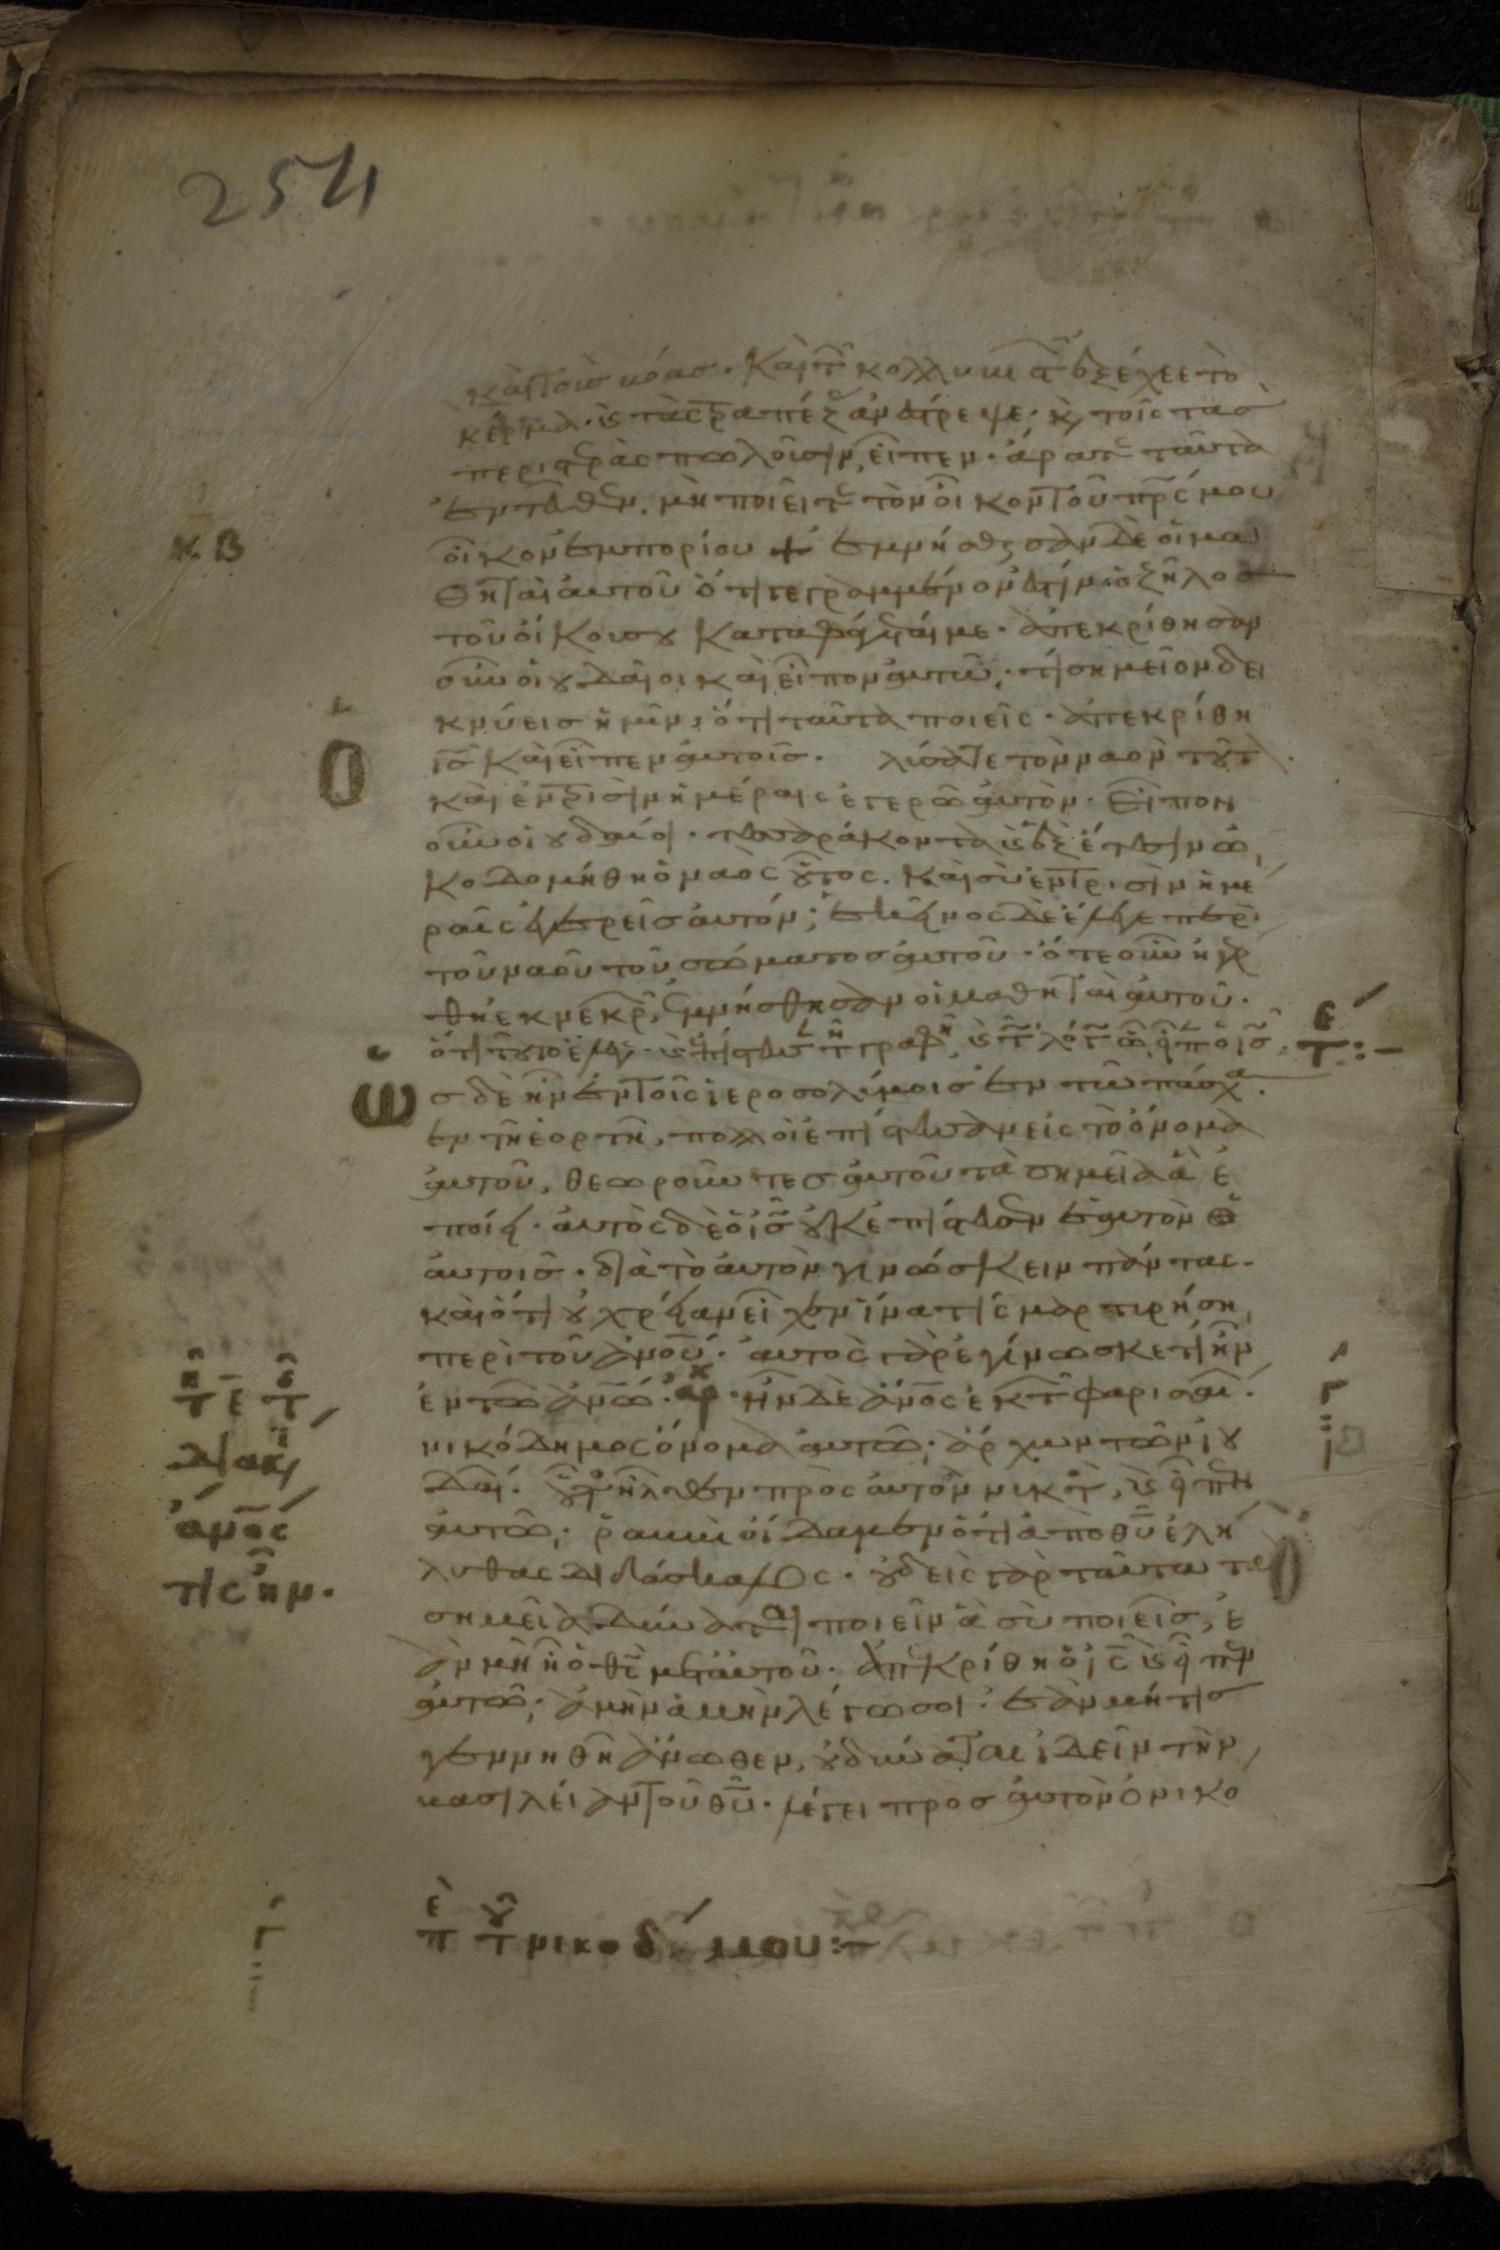 254
καὶ τοὺς βόας. Καὶ τῶν κολλυβιστῶν ἐξέχεε τὸ
κέρμα. καὶ τὰς τραπέζας ἀνέστρεψε. καὶ τοῖς τὰς
περιστερὰς πωλοῦσιν, εἶπεν. ἄρατε ταῦτα
ἐντεῦθεν. μὴ ποιεῖτε τὸν οἶκον τοῦ πρς μου
κβ
οἶκον ἐμπορίου + ἐμνήσθησαν δὲ οἱ μα
θηταὶ αὐτοῦ ὅτι γεγραμμένον ἐστίν· ὁ ζῆλος
τοῦ οἴκου σου καταφάγεταί με. ἀπεκρίθησαν
οὖν οἱ ἰουδαῖοι καὶ εἶπον αὐτῷ. τί σημεῖον δει
κνύεις ἡμῖν, ὅτι ταῦτα ποιεῖς. ἀπεκρίθη
ις καὶ εἶπεν αὐτοῖς. λύσατε τὸν ναὸν τοῦτον
καὶ ἐν τρισὶν ἡμέραις ἐγερῶ αὐτόν. Εἶπον
οὖν οἱ ἰουδαῖοι. τεσσαράκοντα καὶ ἓξ ἔτεσιν ᾠ
κοδομήθη ὁ ναὸς οὗτος. καὶ σὺ ἐν τρισὶν ἡμέ
ραις ἐγερεῖς αὐτόν; ἐκεῖνος δὲ ἔλεγε περὶ
τοῦ ναοῦ τοῦ σώματος αὐτοῦ. ὅτε οὖν ἠγέρ
θη ἐκ νεκρῶν, ἐμνήσθησαν οἱ μαθηταὶ αὐτοῦ.
ὅτι τοῦτο ἔλεγε. καὶ ἐπίστευσαν τῇ γραφῇ, καὶ τῷ λόγῳ ᾧ εἶπεν ὁ ις.
τε:-
Ὡς δὲ ἦν ἐν τοῖς ἱεροσολύμοις ἐν τῷ πάσχα.
ἐν τῇ ἑορτῇ, πολλοὶ ἐπίστευσαν εἰς τὸ ὄνομα
αὐτοῦ, θεωροῦντες αὐτοῦ τὰ σημεῖα ἃ ἐ
ποίει. αὐτὸς δὲ ὁ ις οὐκ ἐπίστευεν ἑαυτὸν
αὐτοῖς. διὰ τὸ αὐτὸν γινώσκειν πάντας.
καὶ ὅτι οὐ χρείαν εἶχεν ἵνα τὶς μαρτυρήσῃ,
περὶ τοῦ ἀνου. αὐτὸς γὰρ ἐγίνωσκε τί ἦν
ἐν τῷ ἀνω. ἀρχ. Ἦν δὲ ἀνος ἐκ τῶν φαρισαίων.
νικόδημος ὄνομα αὐτῷ. ἄρχων τῶν ἰου
δαίων. οὗτος ἦλθεν πρὸς αὐτὸν νυκτὸς, καὶ εἶπεν
αὐτῷ· ῥαββὶ οἴδαμεν ὅτι ἀπὸ θυ ἐλή
λυθας διδάσκαλος. οὐδεὶς γὰρ ταῦτα τὰ
σημεῖα δύναται ποιεῖν ἃ σὺ ποιεῖς, ἐ
ὰν μὴ ᾖ ὁ θς μετ αὐτοῦ. ἀπεκρίθη ὁ ις καὶ εἶπεν
αὐτῷ· ἀμὴν ἀμὴν λέγω σοι. ἐὰν μή τις
γεννηθῇ ἄνωθεν, οὐ δύναται ἰδεῖν τὴν
βασιλείαν τοῦ θυ. λέγει πρὸς αὐτὸν ὁ νικό
ἀνος
τις ἦν.
πε του νικοδήμου:-